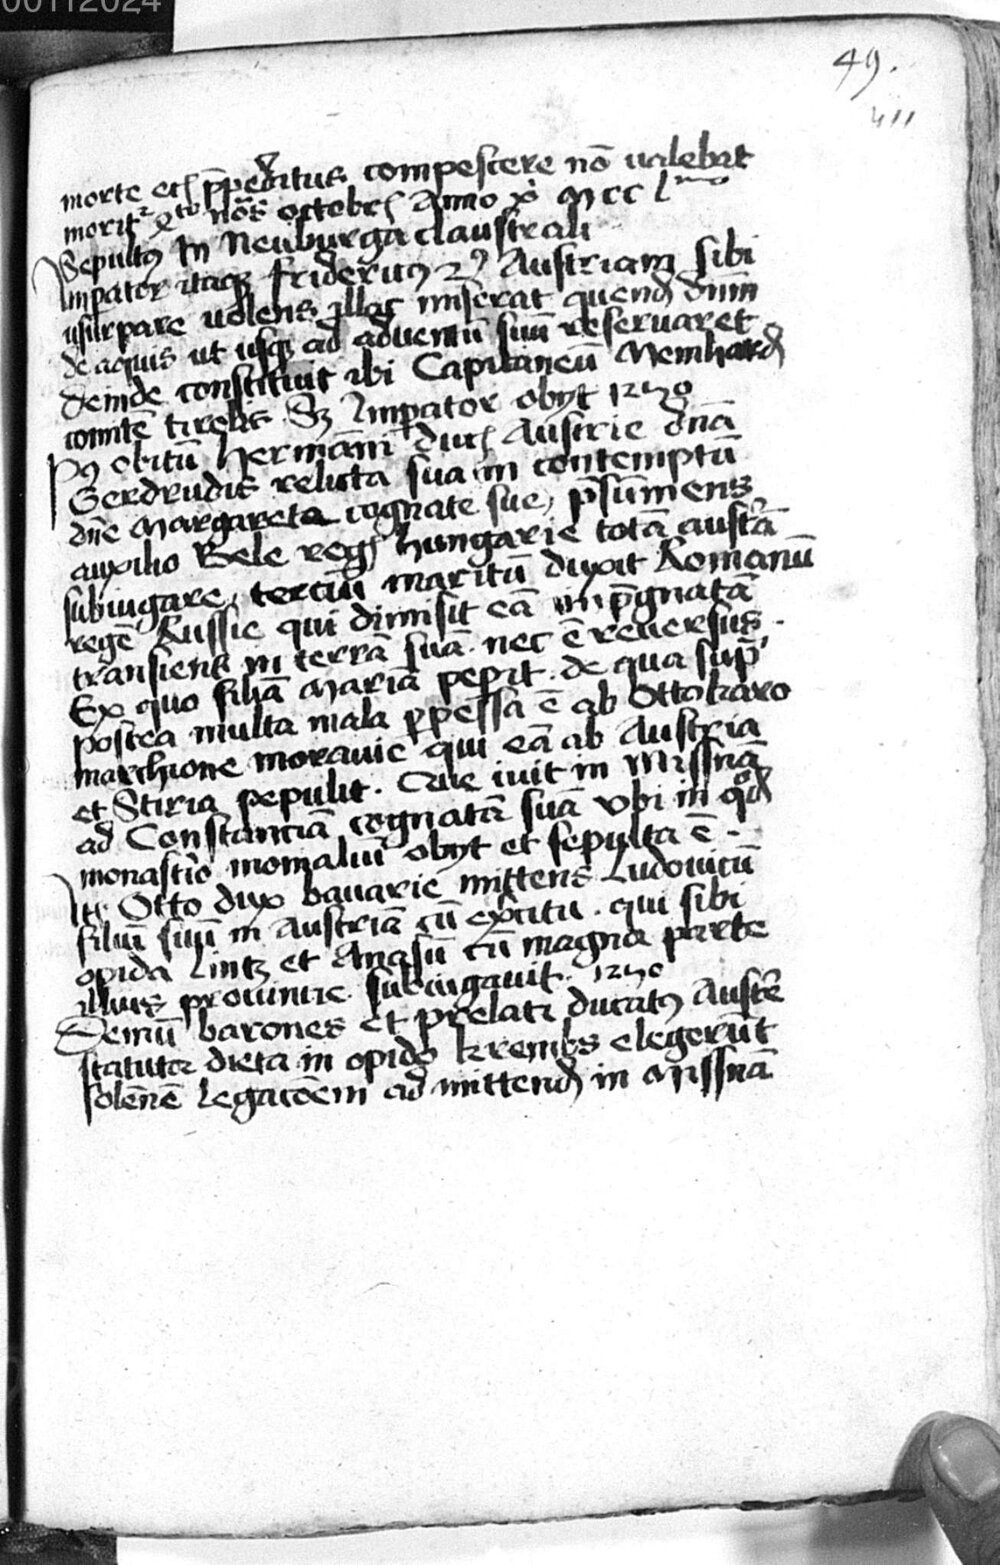 00112024
49.
morte etc p̄peditus compescere nō valebat
morit᷑ nōs octobrꝭ Anno xp̄i Mccl
Sepultꝰ In Neuburga claustrali
Imp̄ator itaqꝫ fridericꝰ 2ꝰ Austriam sibi
usurpare volens illac miserat quendā dn̄m
de aquis ut usqꝫ ad adventū suū reservaret
deinde constituit ibi Capitaneū Meinhardū
comitē tirolis Sꝫ Imp̄ator obyt 1250
Pꝰ obitū hermāni ducꝭ Austrie dn̄a
Gerdrudis relicta sua in contemptū
dn̄e Margareta cognate sue, p̄sūmens
auxilio Bele regꝭ hungarie totā austriā
subiugare, terciū maritū duxit Romanū
regē Russie qui dimisit eā imp̄gnatā
transiens in terrā suā nec ē reversus.
Ex quo filiā Mariā pepit. de qua sup̄
postea multa mala ꝑpessa ē ab Ottokaro
marchione moravie qui eā ab Austria
et Stiria pepulit. Que ivit in Missnā
ad Constanciā cognatā suā ubi in qdā
monastio monialiū obyt et sepulta ē
Itē Otto dux bavarie mittens Ludovicū
filiū suū in Austriā cū exc̄itu. qui sibi
opida Lintz et Anasū cū magna parte
illius provincie subiugavit. 1250
Demū barones et prelati ducatꝰ Austrie
statuta dieta in opido krembs elegerūt
solēnē legacōem ad mittendā in Missnā